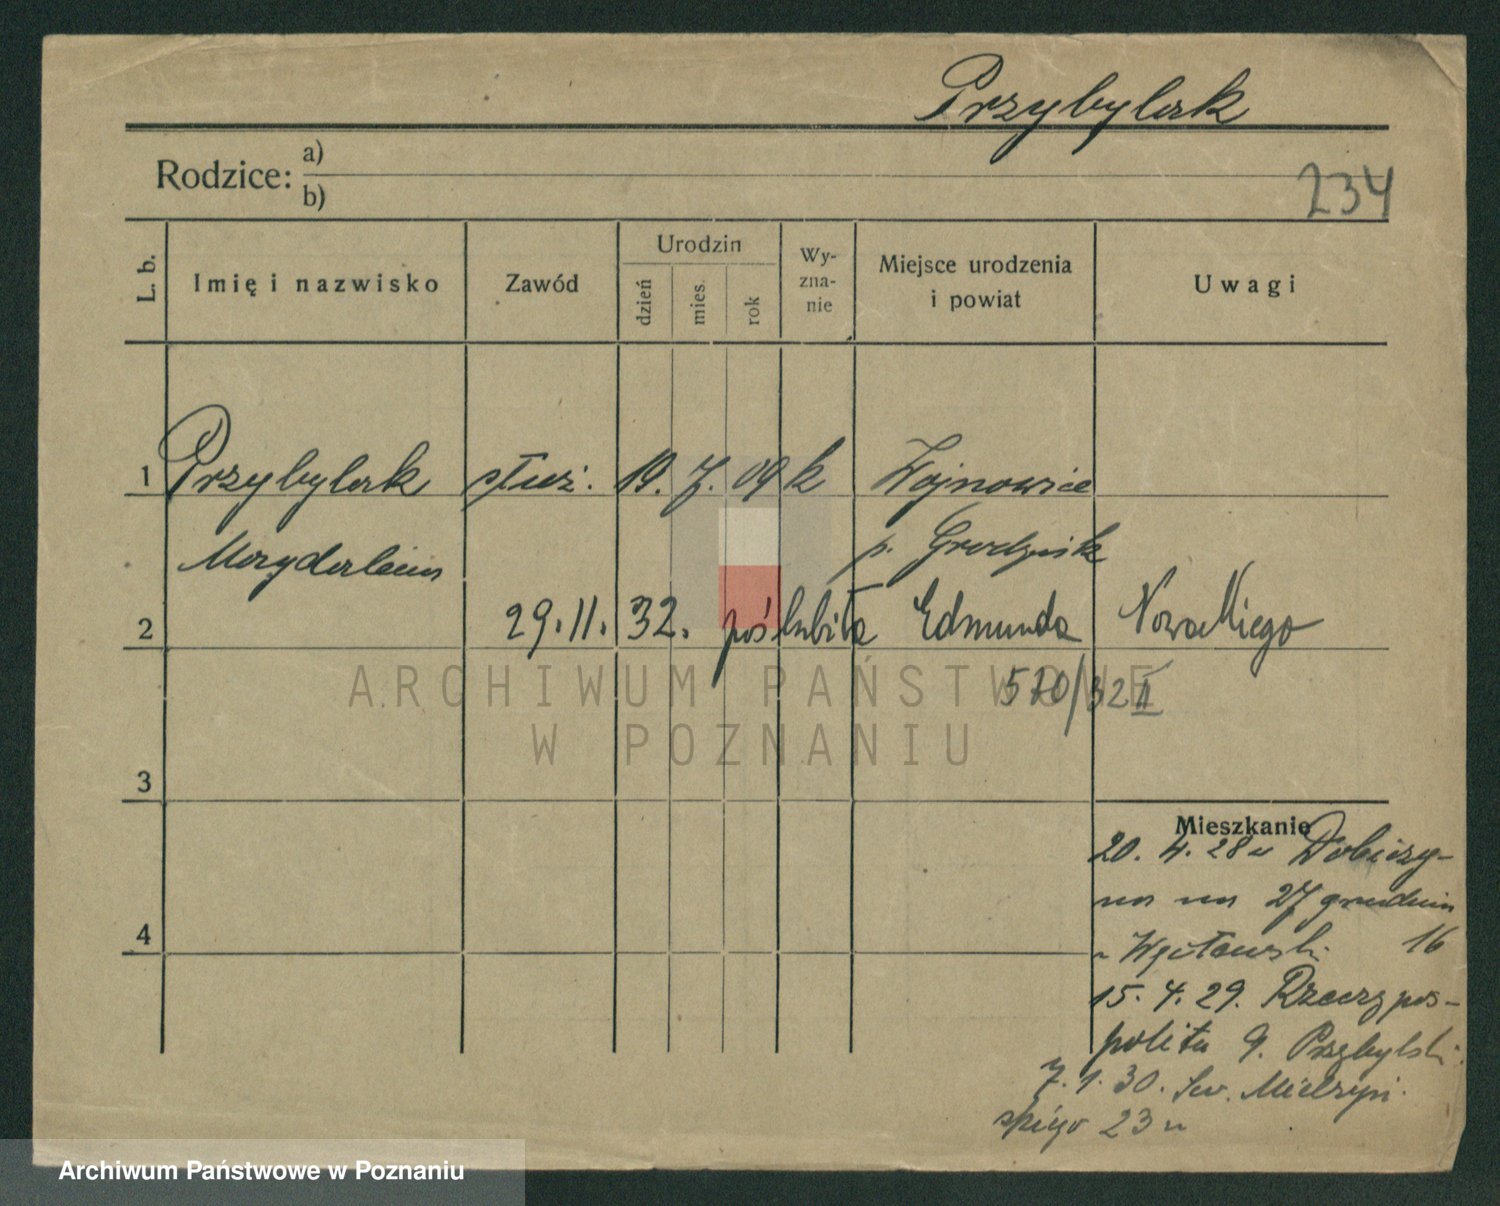 Przybylak
Rodzice: a)
b)
234
L. b.
Imię i nazwisko
Zawód
Urodzin
dzień
mies.
rok
Wy-
zna-
nie
Miejsce urodzenia
i powiat
Uwagi
1 Przybylak służ. 19. 7. 09 k Wojnowice
Magdalena p. Grodzisk
2 29. 11. 32. poślubiła Edmunda Nowackiego
570/32 II
ARCHIWUM PAŃSTWOWE
W POZNANIU
3
Mieszkanie
20. 4. 28
na 27 grudnia
4
16
15. 4. 29. Rzeczypos-
polita 9. Przybylski
7. 1. 30. Sew. Mielżyń.
skiego 23
Archiwum Państwowe w Poznaniu